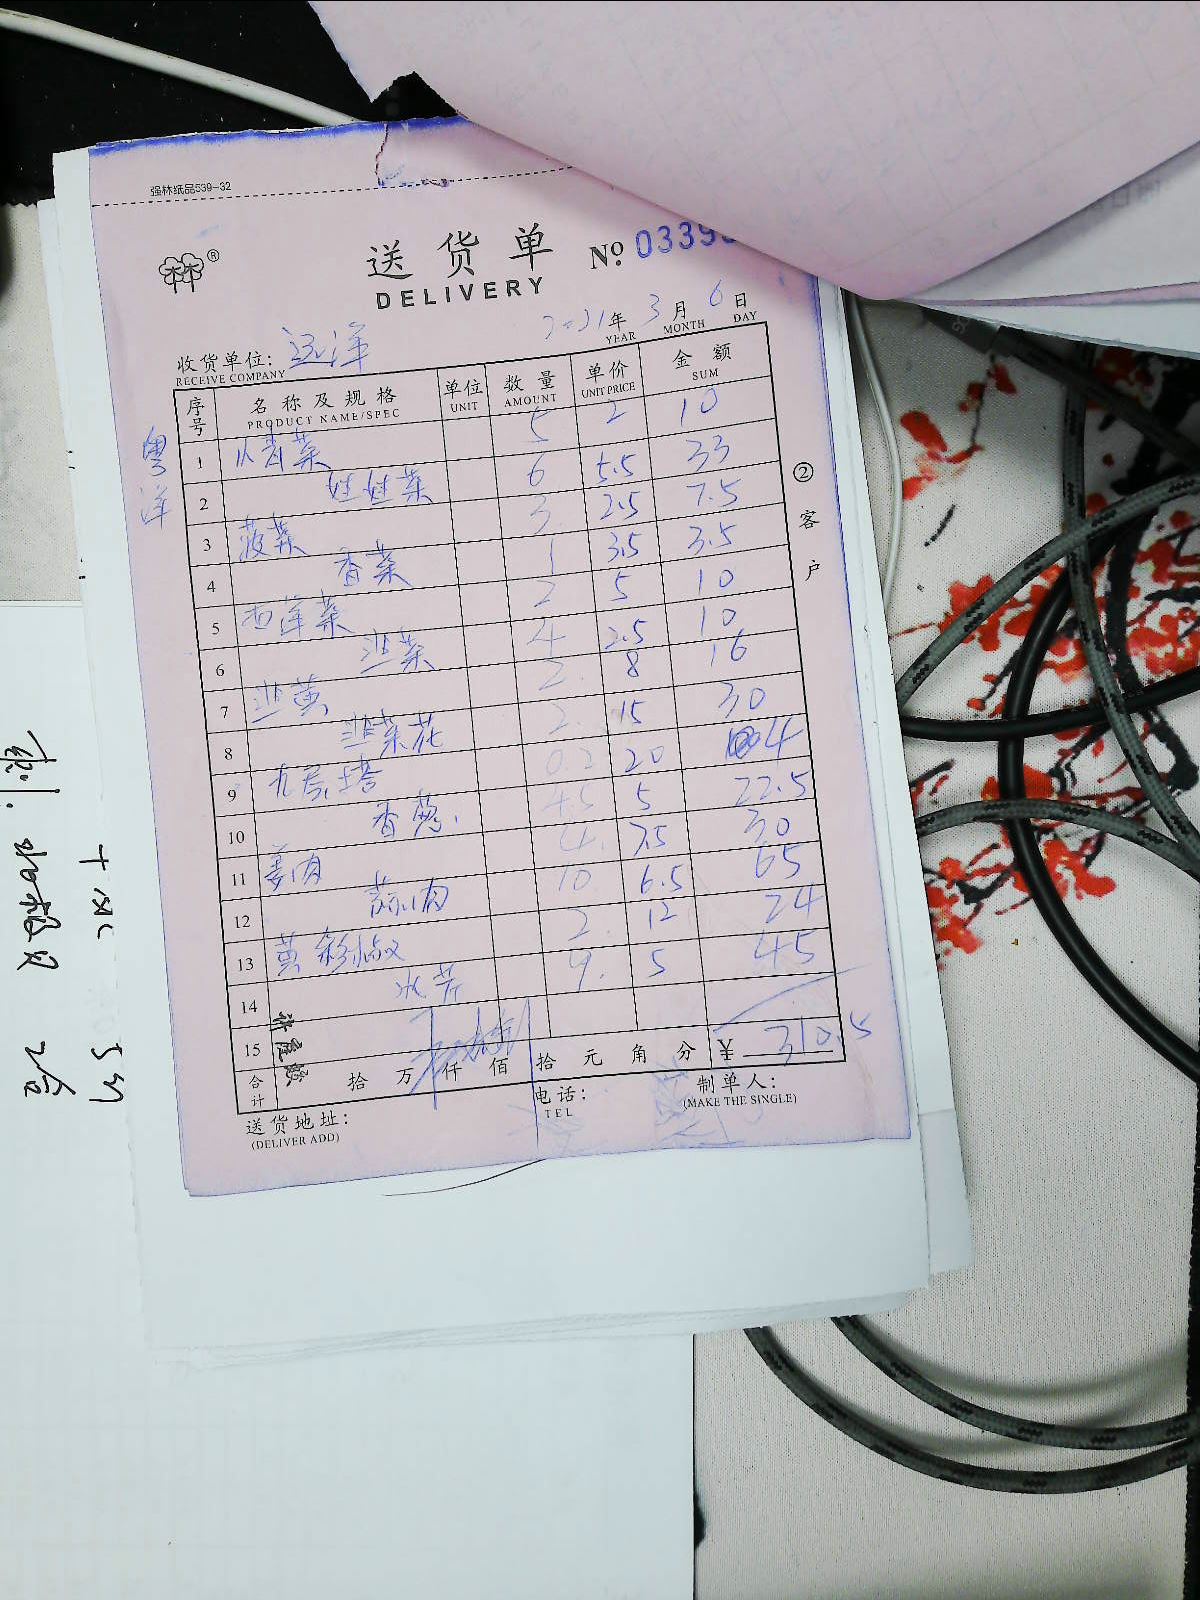 强林纸品539-32
送货单 № 0339
DELIVERY
2021年 3月 6日
YEAR MONTH DAY
收货单位: 远洋
RECEIVE COMPANY
粤洋
序号 名称及规格 单位 数量 单价 金额
PRODUCT NAME/SPEC UNIT AMOUNT UNIT PRICE SUM
1 小青菜 5 2 10
2 娃娃菜 6 5.5 33
3 菠菜 3 2.5 7.5
4 香菜 1 3.5 3.5
5 西洋菜 2 5 10
6 韭菜 4 2.5 10
7 韭黄 2 8 16
8 韭菜花 2 15 30
9 九层塔 0.2 20 4
10 香葱 4.5 5 22.5
11 姜肉 4 7.5 30
12 蒜肉 10 6.5 65
13 黄彩椒 2 12 24
14 水芹 9 5 45
15
合计 拾 万 仟 佰 拾 元 角 分 ¥ 310.5
送货地址: 电话: 制单人:
(DELIVER ADD) TEL (MAKE THE SINGLE)
②客户